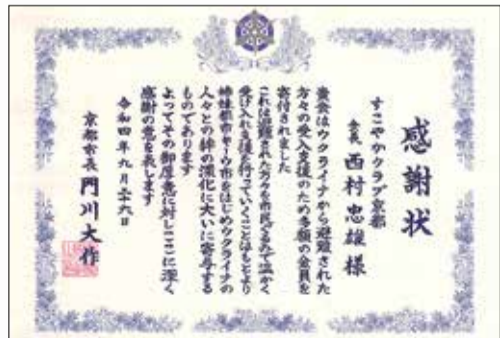 感謝状
すこやかクラブ京都
会長 西村忠雄 様
貴会はウクライナから避難された
方々の受入支援のため多額の金員を
寄付されました
これは避難された方々を市民ぐるみで温かく
受け入れる支援を行っていくことはもとより
姉妹都市キーウ市をはじめウクライナの
人々との絆の深化に大いに寄与する
ものであります
よってその御厚意に対しここに深く
感謝の意を表します
令和四年九月二十六日
京都市長 門川大作